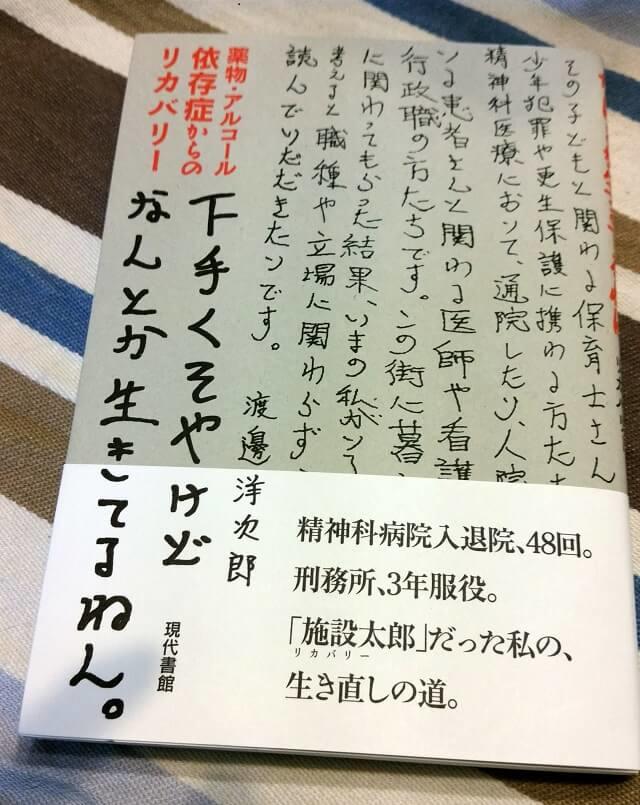 その子どもと関わる保育士さん
少年犯罪や更生保護に携わる方た
精神科医療において、通院したり、入院
いる患者さんと関わる医師や看護
行政職の方たちです。この街に暮
に関わってもらった結果、いまの私がいる
考えると職種や立場に関わらず
読んでいただきたいです。
渡邊洋次郎
薬物・アルコール
依存症からの
リカバリー
下手くそやけど
なんとか生きてるねん。
現代書館
精神科病院入退院、48回。
刑務所、3年服役。
「施設太郎」だった私の、
リカバリー
生き直しの道。